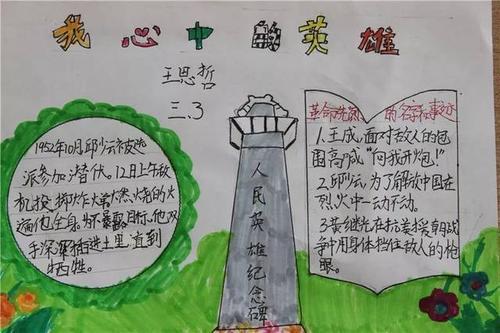 我心中的英雄
王思哲
三.3
1952年10月邱少云被选
派参加潜伏。12日上午敌
机投掷炸弹燃烧的火
遍他全身。为不暴露目标,他双
手深深插进土里直到
牺牲。
人民英雄纪念碑
革命先烈的名字和事迹
1.王成,面对敌人的包
围高喊"向我开炮!"
2.邱少云,为了解放中国在
烈火中一动不动。
3.黄继光在抗美援朝战
争中用身体挡住敌人的炮
眼。